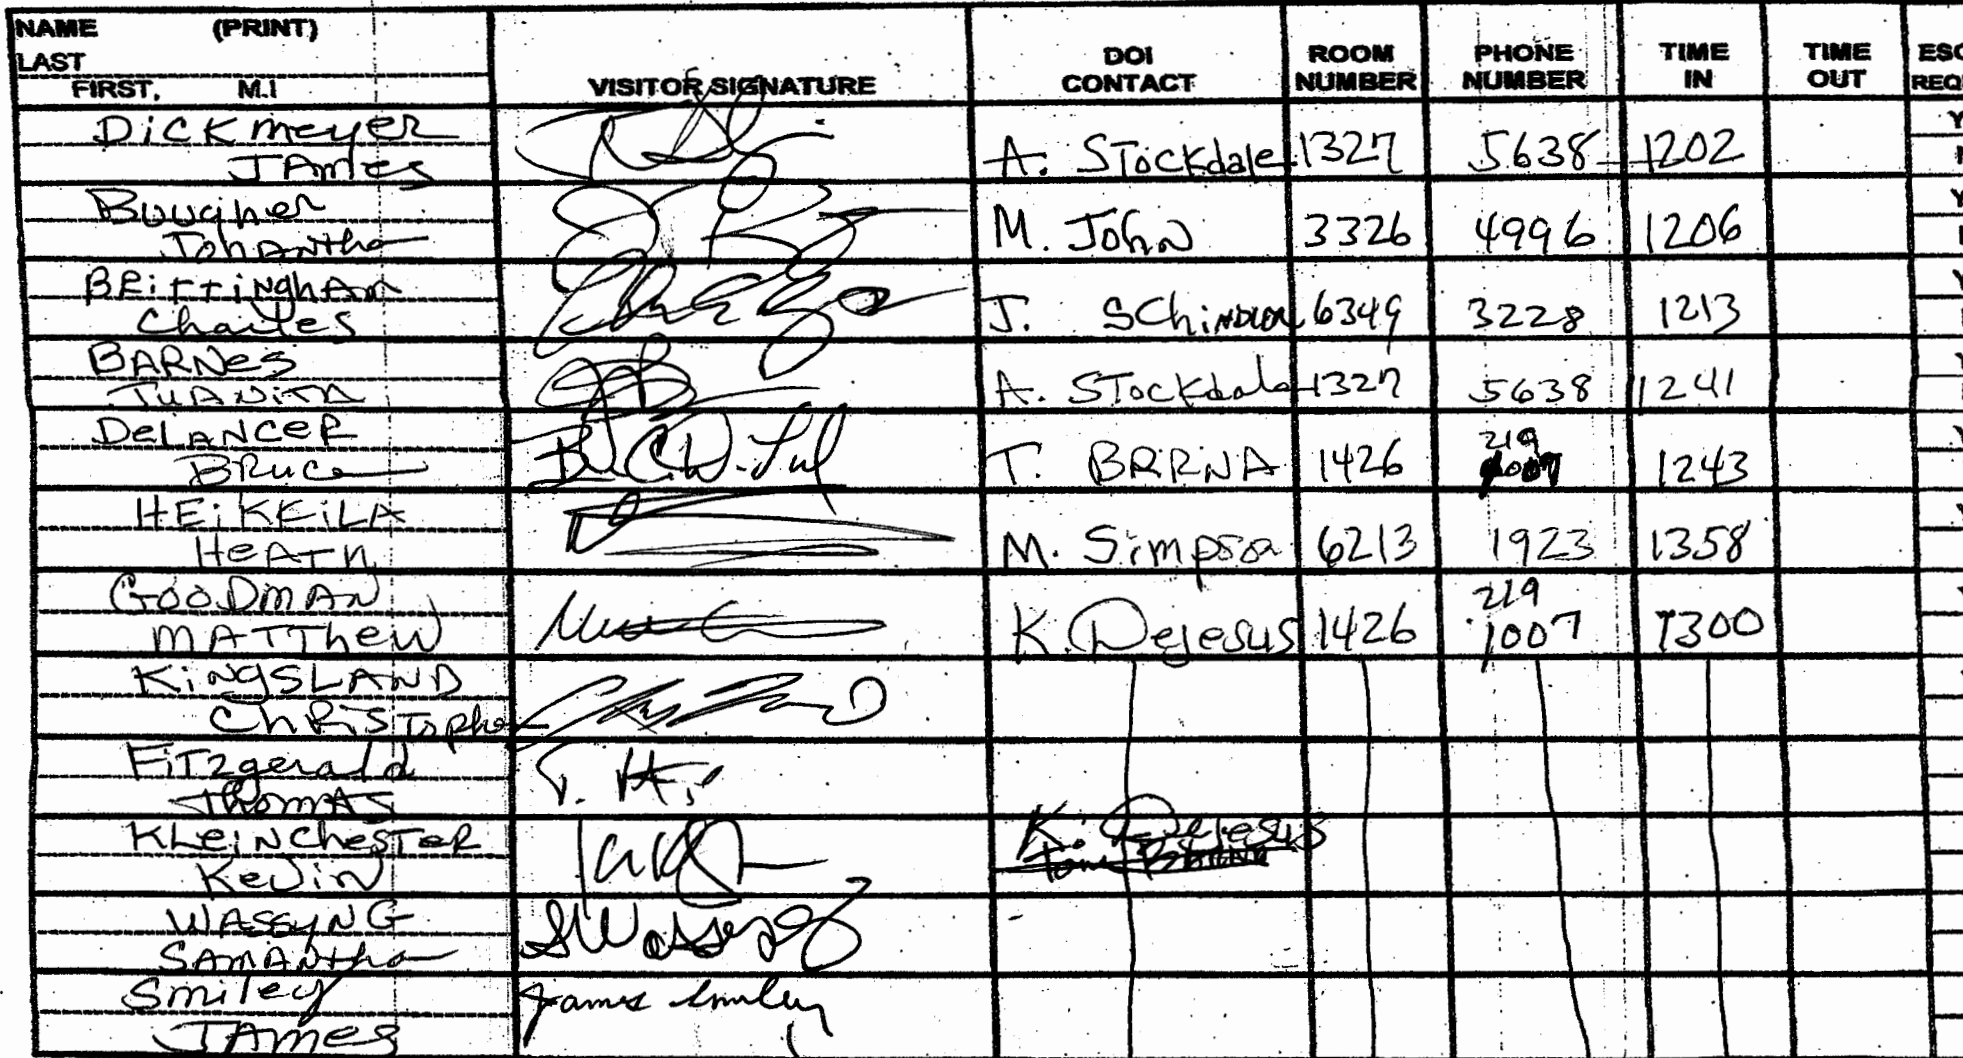 NAME (PRINT)
LAST
FIRST, M.I
VISITOR SIGNATURE
DOI CONTACT
ROOM NUMBER
PHONE NUMBER
TIME IN
TIME OUT
Dickmeyer
James
A. Stockdale 1327 5638 1202
Bougher
M. John 3326 4996 1206
Brittingham
Charles
J. Schindler 6349 3228 1213
Barnes
Juanita
A. Stockdale 1327 5638 1241
DeLancer
Bruce
T. BRRNA 1426 219 1243
HEiKKiLA
Heath
M. Simpson 6213 1923 1358
Goodman
Matthew
K. Dejesus 1426 219 1007 1300
Kingsland
Christopher
Fitzgerald
Thomas
Kleinchester
Kevin
K. Dejesus
Wassyng
Samantha
S Wassyng
Smiley
James
James Smiley